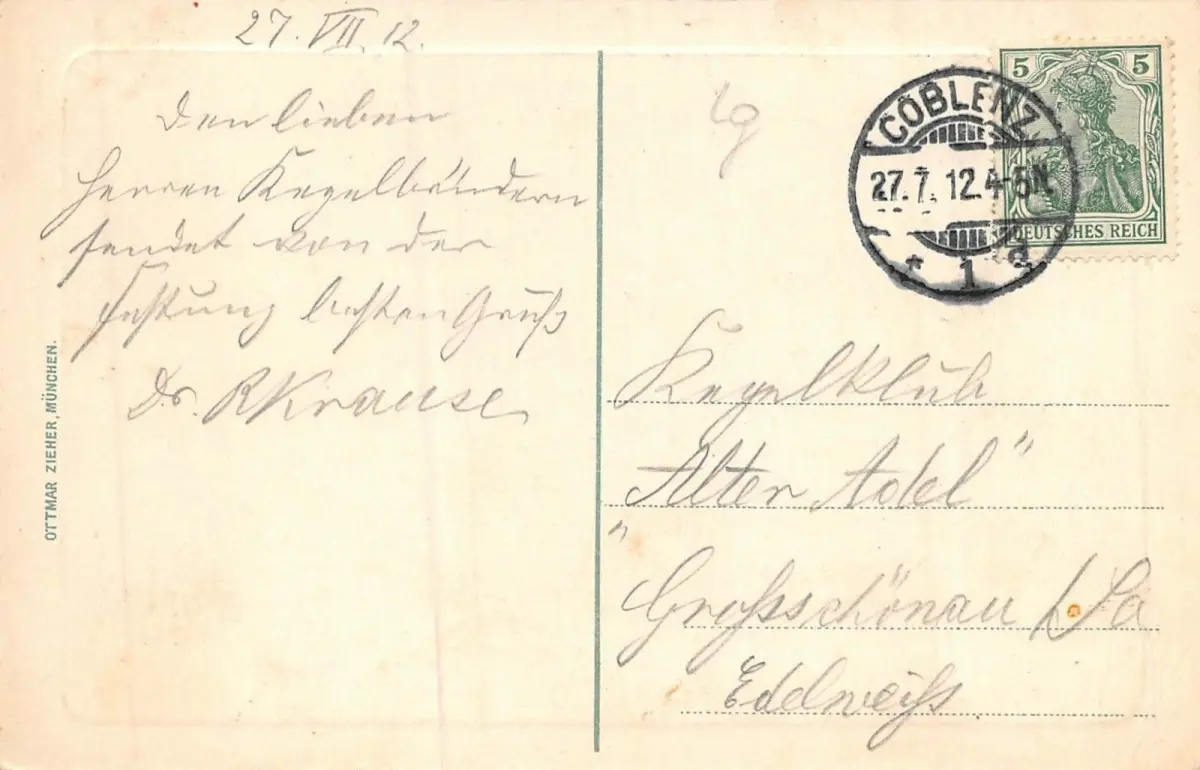 27. VII. 12.
Den lieben
Herren Kegelbrüdern
sendet von der
Festung besten Gruß
Dr. RKrause
OTTMAR ZIEHER, MÜNCHEN.
COBLENZ
27.7.12.4-5N.
* 1 d
5 5
DEUTSCHES REICH
Kegelklub
„Alter Adel“
Großschönau /Sa
Edelweiß